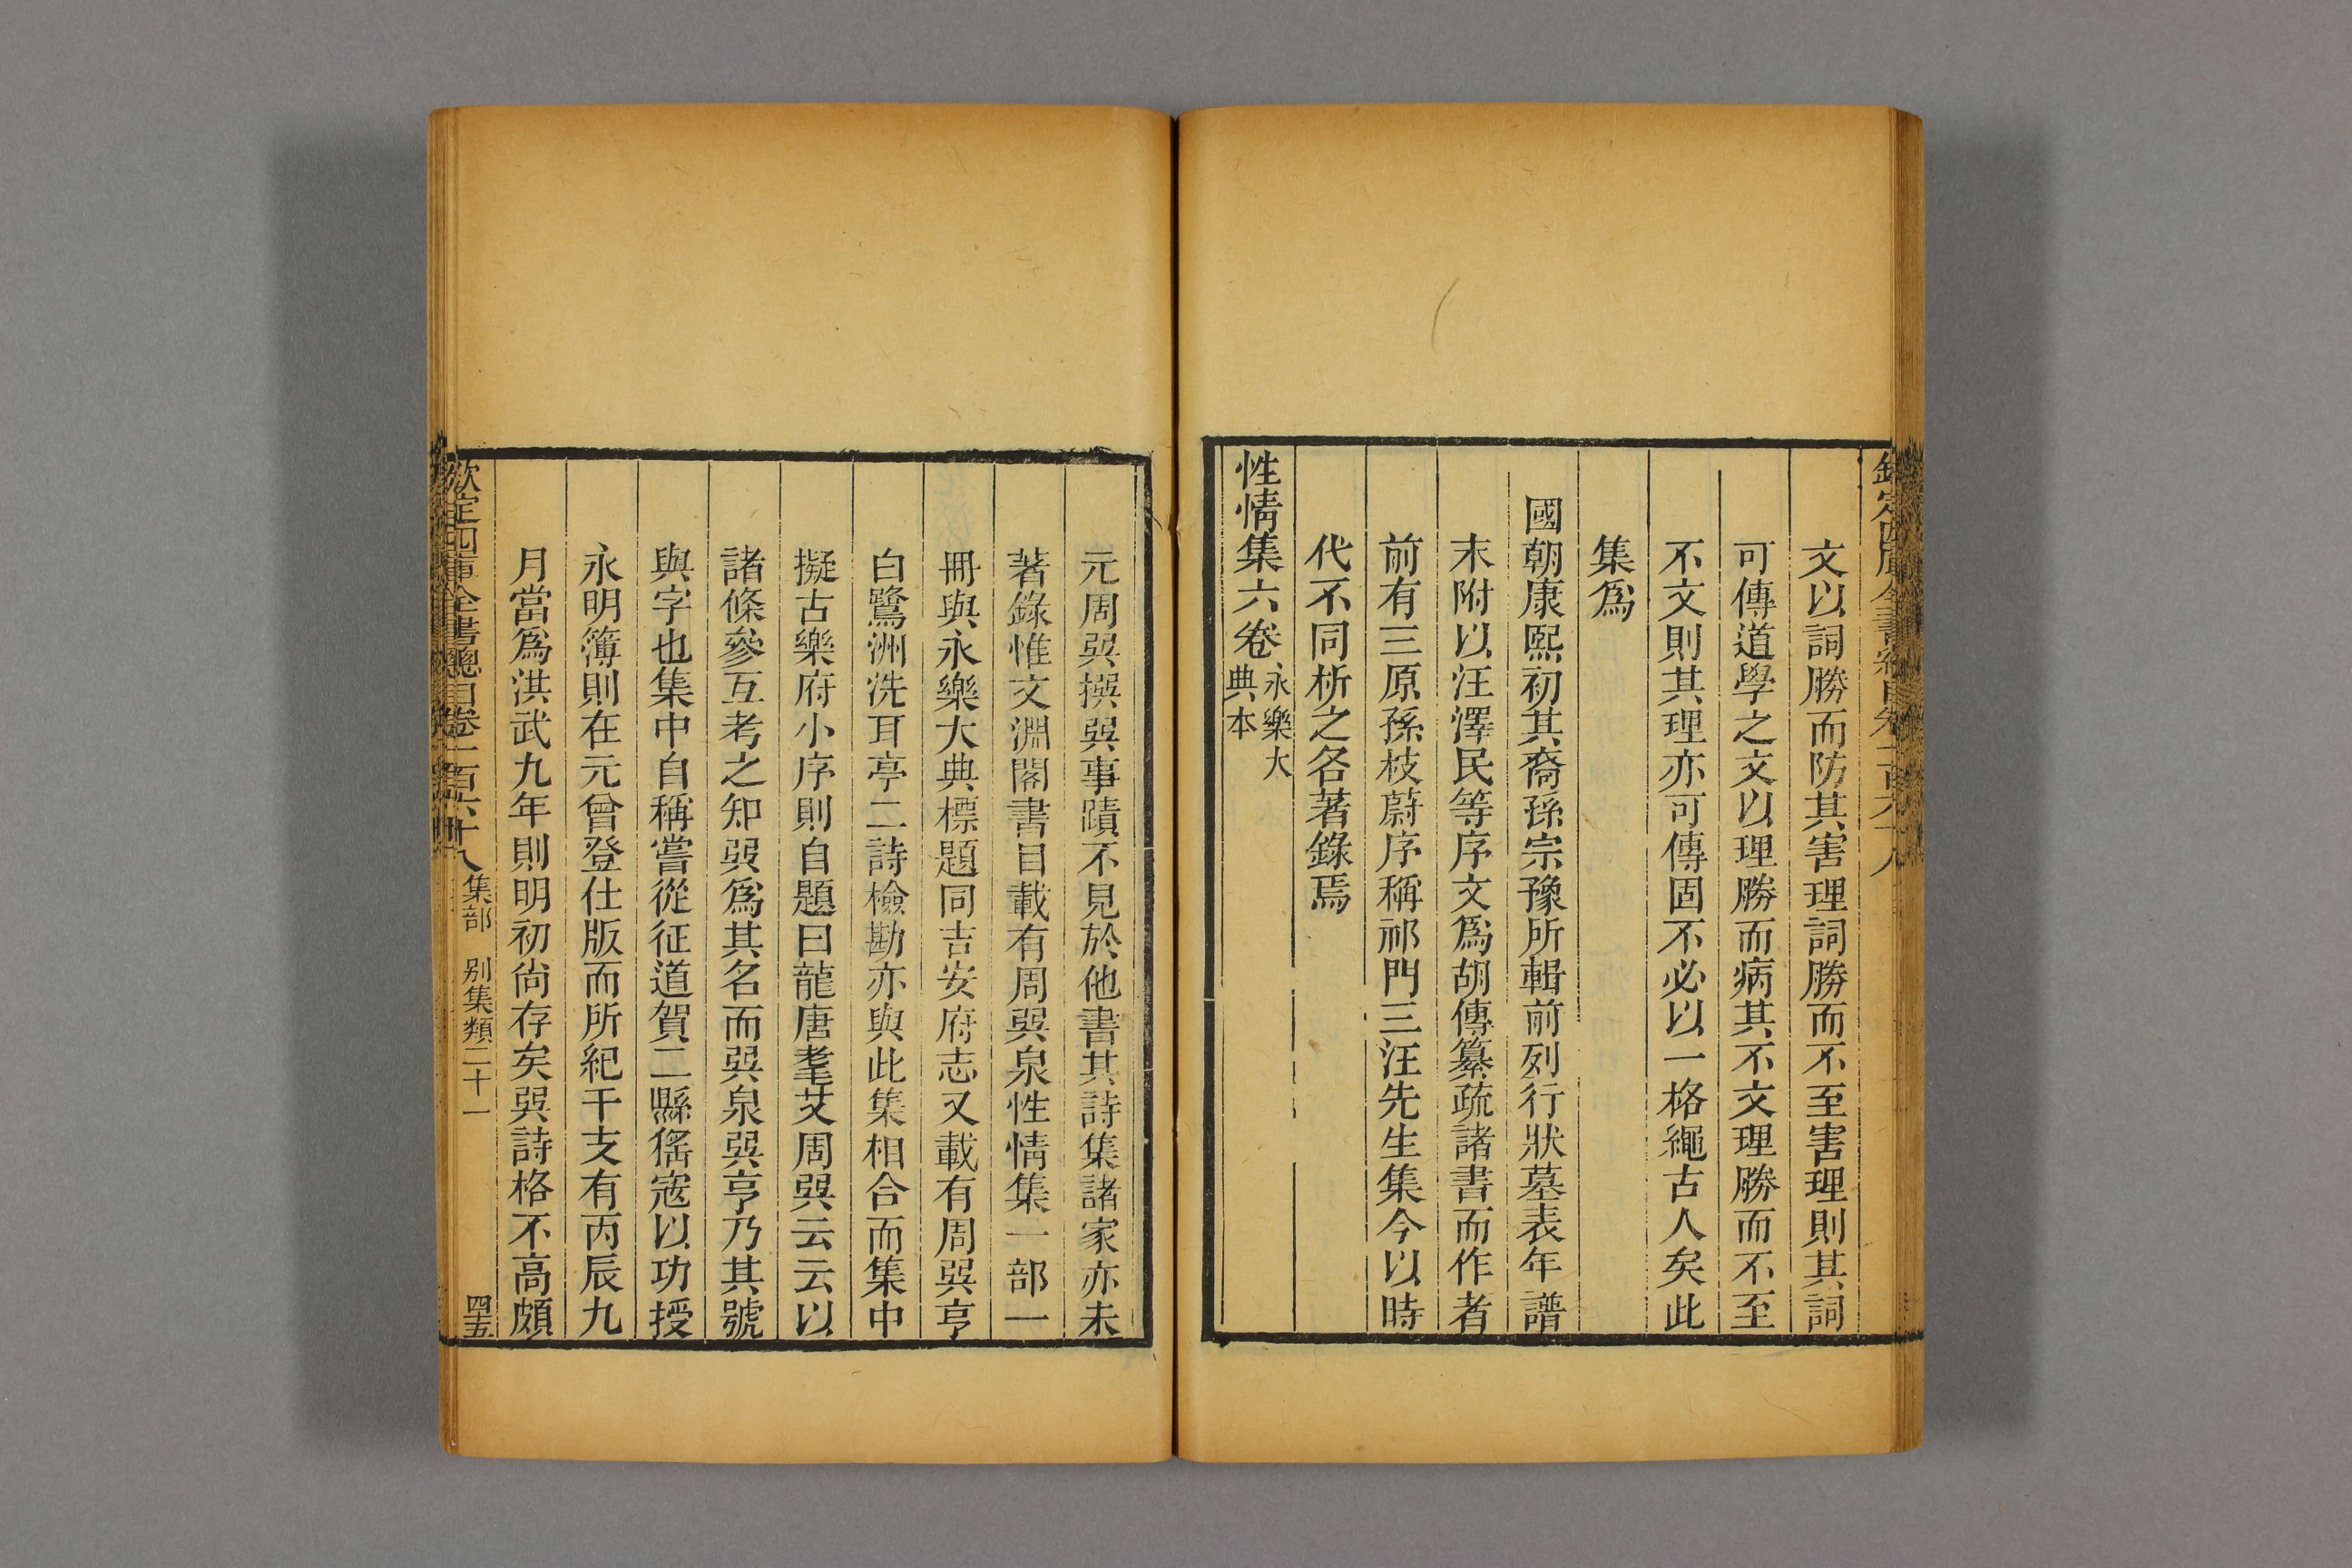 欽定四庫全書總目卷一百六十八
文以詞勝而防其害理詞勝而不至害理則其詞
可傳道學之文以理勝而病其不文理勝而不至
不文則其理亦可傳固不必以一格繩古人矣此
集爲
國朝康熙初其裔孫宗豫所輯前列行狀墓表年譜
末附以汪澤民等序文爲胡傳纂疏諸書而作者
前有三原孫枝蔚序稱祁門三汪先生集今以時
代不同析之各著錄焉
性情集六卷永樂大典本
元周巽撰巽事蹟不見於他書其詩集諸家亦未
著錄惟文淵閣書目載有周巽泉性情集一部一
冊與永樂大典標題同吉安府志又載有周巽亨
白鷺洲洗耳亭二詩檢勘亦與此集相合而集中
擬古樂府小序則自題曰龍唐耄艾周巽云云以
諸條參互考之知巽爲其名而巽泉巽亨乃其號
與字也集中自稱嘗從征道賀二縣猺寇以功授
永明簿則在元曾登仕版而所紀干支有丙辰九
月當爲洪武九年則明初尚存矣巽詩格不高頗
欽定四庫全書總目卷一百六十八 集部 別集類二十一 四五